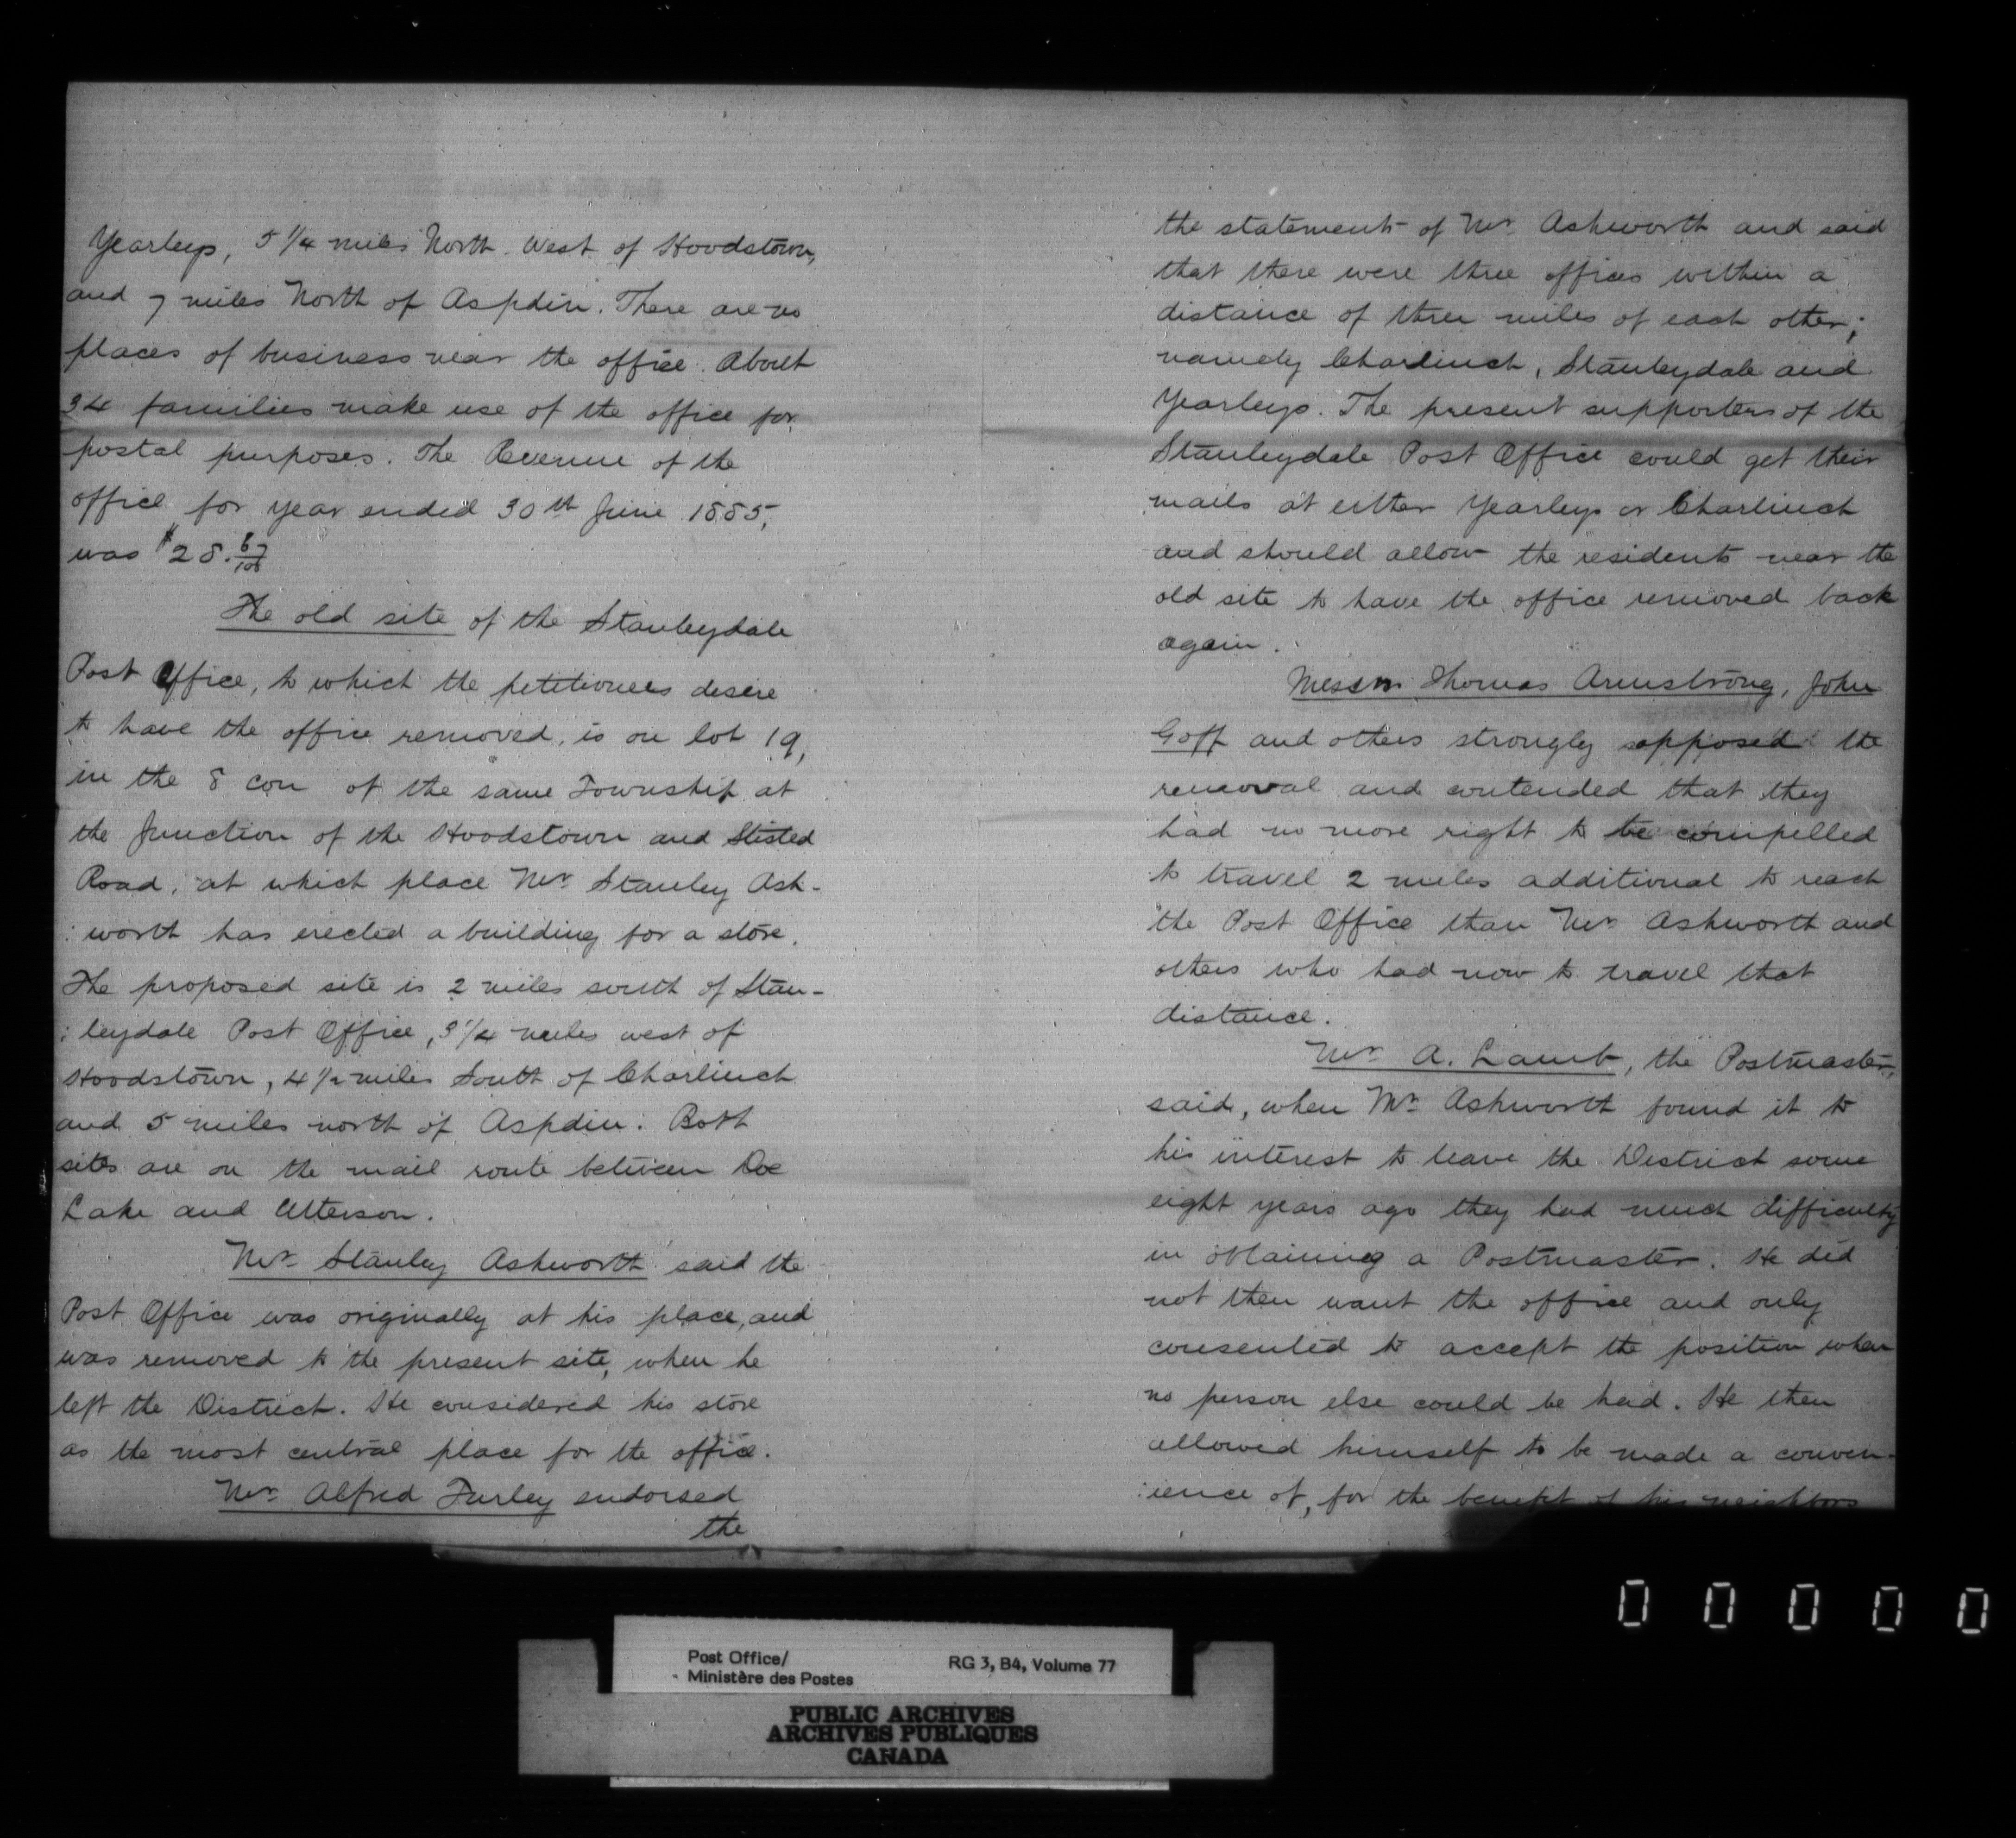 Yearleys, 5 1/4 miles North West of Hoodstown,
and 7 miles North of Aspdin. There are no
places of business near the office. About
34 families make use of the office for
postal purposes. The Revenue of the
office for year ended 30th June 1885,
was $28.67/100
The old site of the Stanleydale
Post Office, to which the petitioners desire
to have the office removed, is on lot 19,
in the 8 con of the same Township at
the Junction of the Hoodstown and Stisted
Road, at which place Mr Stanley Ash-
:worth has erected a building for a store.
The proposed site is 2 miles south of Stan-
:leydale Post Office, 3 1/4 miles west of
Hoodstown, 4 1/2 miles South of Charlinch
and 5 miles north of Aspdin. Both
sites are on the mail route between Doe
Lake and Utterson.
Mr Stanley Ashworth said the
Post Office was originally at his place, and
was removed to the present site, when he
left the District. He considered his store
as the most central place for the office.
Mr Alfred Furley endorsed
the
the statements of Mr Ashworth and said
that there were three offices within a
distance of three miles of each other;
namely Charlinch, Stanleydale and
Yearleys. The present supporters of the
Stanleydale Post Office could get their
mails at either Yearleys or Charlinch
and should allow the residents near the
old site to have the office removed back
again.
Messrs Thomas Armstrong, John
Goff and others strongly opposed the
removal and contended that they
had no more right to be compelled
to travel 2 miles additional to reach
the Post Office than Mr Ashworth and
others who had now to travel that
distance.
Mr A. Lamb, the Postmaster,
said, when Mr Ashworth found it to
his interest to leave the District some
eight years ago they had much difficulty
in obtaining a Postmaster. He did
not then want the office and only
consented to accept the position when
no person else could be had. He then
allowed himself to be made a conven-
:ience of, for the benefit of his neighbors
0 0 0 0 0
Post Office/
Ministère des Postes
RG 3, B4, Volume 77
PUBLIC ARCHIVES
ARCHIVES PUBLIQUES
CANADA